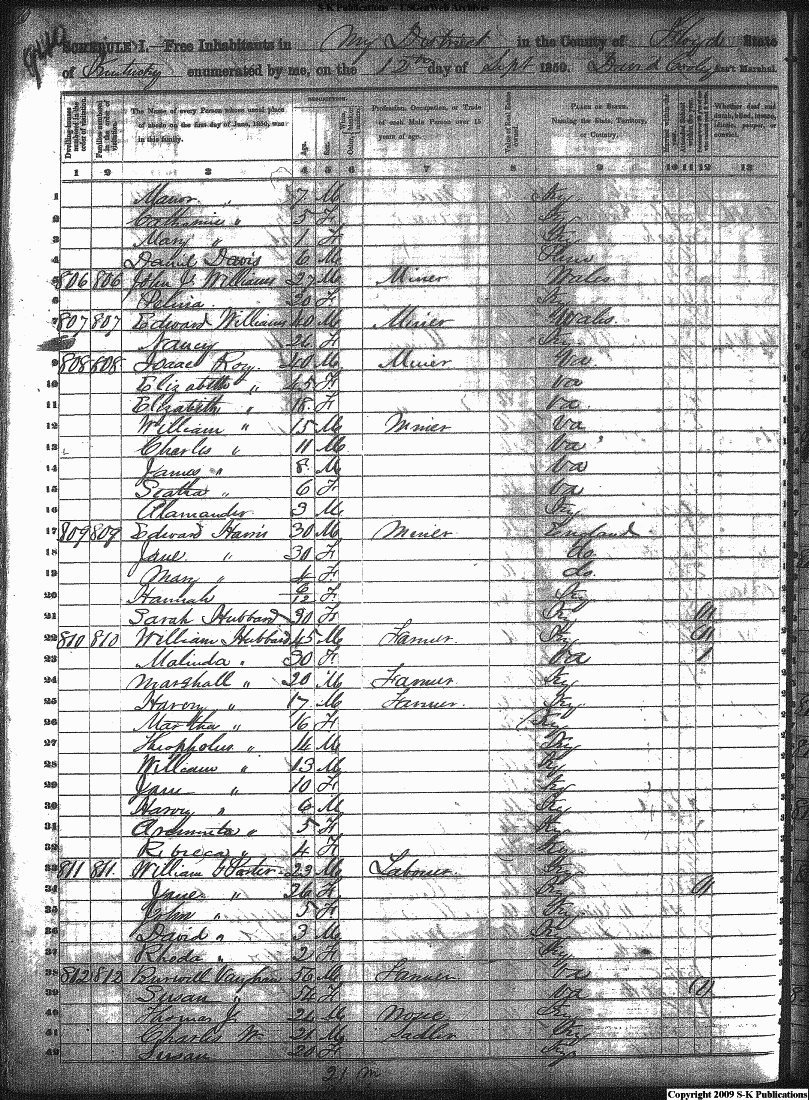 S-K Publications - USGenWeb Archives
940
SCHEDULE I.—Free Inhabitants in My District in the County of Floyd State
of Kentucky enumerated by me, on the 12th day of Sept 1850. David Cooley Ass't Marshal.
Dwelling-houses numbered in the order of visitation.
Families numbered in the order of visitation.
The Name of every Person whose usual place of abode on the first day of June, 1850, was in this family.
DESCRIPTION.
Age.
Sex.
Profession, Occupation, or Trade of each Male Person over 15 years of age.
Value of Real Estate owned.
PLACE OF BIRTH. Naming the State, Territory, or Country.
Whether deaf and dumb, blind, insane, idiotic, pauper, or convict.
1 2 3 4 5 6 7 8 9 10 11 12 13
1 " 7 M Ky
2 Catharine " 5 F Ky
3 Mary " 1 F Ky
4 David Davis 6 M
5 806 806 John J. Williams 27 M Miner Wales
6 30 F Ky
7 807 807 Edward Williams 40 M Miner Wales
8 Nancy F Ky
9 808 808 Isaac Roy 40 M Miner Va
10 Elizabeth " 45 F Va
11 Elizabeth " 18 F Va
12 William " 15 M Miner Va
13 Charles " 11 M Va
14 James " 8 M Va
15 " 6 F Va
16 Alamander 3 M Ky
17 809 809 Edward Harris 30 M Miner England
18 Jane " 30 F do.
19 Mary " 4 F do.
20 Hannah 6/12 F Ky
21 Sarah Hubbard 30 F Ky
22 810 810 William Hubbard 45 M Farmer Ky
23 Malinda " 30 F Va 1
24 Marshall " 20 M Farmer Ky
25 Harvy " 17 M Farmer Ky
26 Martha " 16 F Ky
27 Theopholus " 14 M Ky
28 William " 13 M Ky
29 Jane " 10 F Ky
30 Harvy " 6 M Ky
31 Archminta " 5 F Ky
32 Rebecca " 4 F Ky
33 811 811 William Porter 23 M Labourer Ky
34 Jane " 26 F Ky
35 John " 5 Ky
36 David " 3 M Ky
37 Rheda " 2 F Ky
38 812 812 Burwell Vaughan 56 M Farmer Va
39 Susan " 54 F Va
40 Thomas J. 24 M None Ky
41 Charles W. 21 M Sadler Ky
42 Susan 20 F Ky
21 m
Copyright 2009 S-K Publications